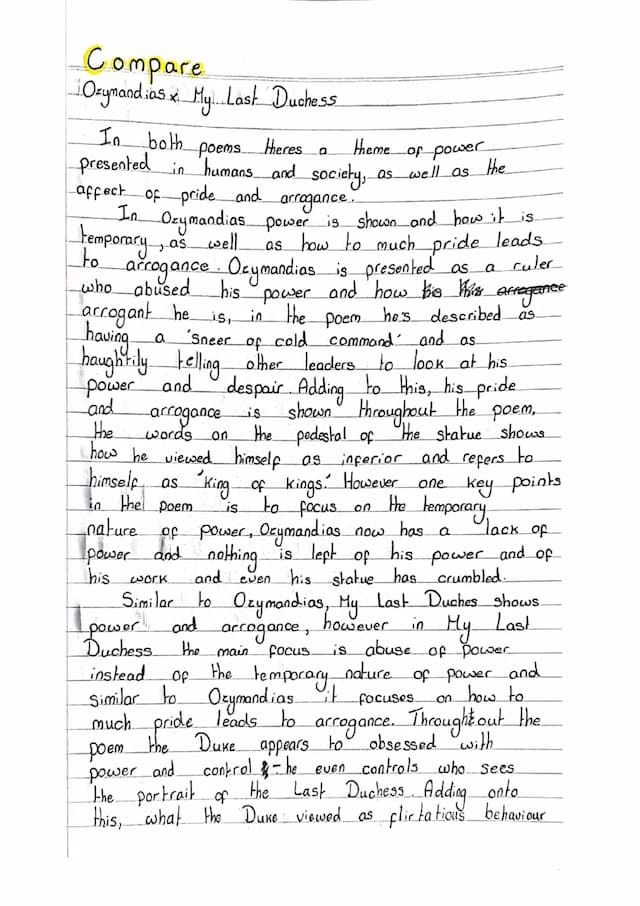 Compare
Ozymandias x My Last Duchess
In both poems theres a theme of power
presented in humans and society, as well as the
affect of pride and arrogance.
In Ozymandias power is shown and how it is
temporary, as well as how to much pride leads
to arrogance. Ozymandias is presented as a ruler
who abused his power and how his arrogance
arrogant he is, in the poem he's described as
having a 'sneer of cold command' and as
haughtily telling other leaders to look at his
power and despair. Adding to this, his pride
and arrogance is shown throughout the poem,
the words on the pedestal of the statue shows
how he viewed himself as inferior and refers to
himself as 'king of kings.' However one key points
in the poem is to focus on the temporary
nature of power, Ozymandias now has a lack of
power and nothing is left of his power and of
his work and even his statue has crumbled.
Similar to Ozymandias, My Last Duches shows
power and arrogance, however in My Last
Duchess the main focus is abuse of power
instead of the temporary nature of power and
similar to Ozymandias it focuses on how to
much pride leads to arrogance. Throughtout the
poem the Duke appears to obsessed with
power and control - he even controls who sees
the portrait of the Last Duchess. Adding onto
this, what the Duke viewed as flirtatious behaviour